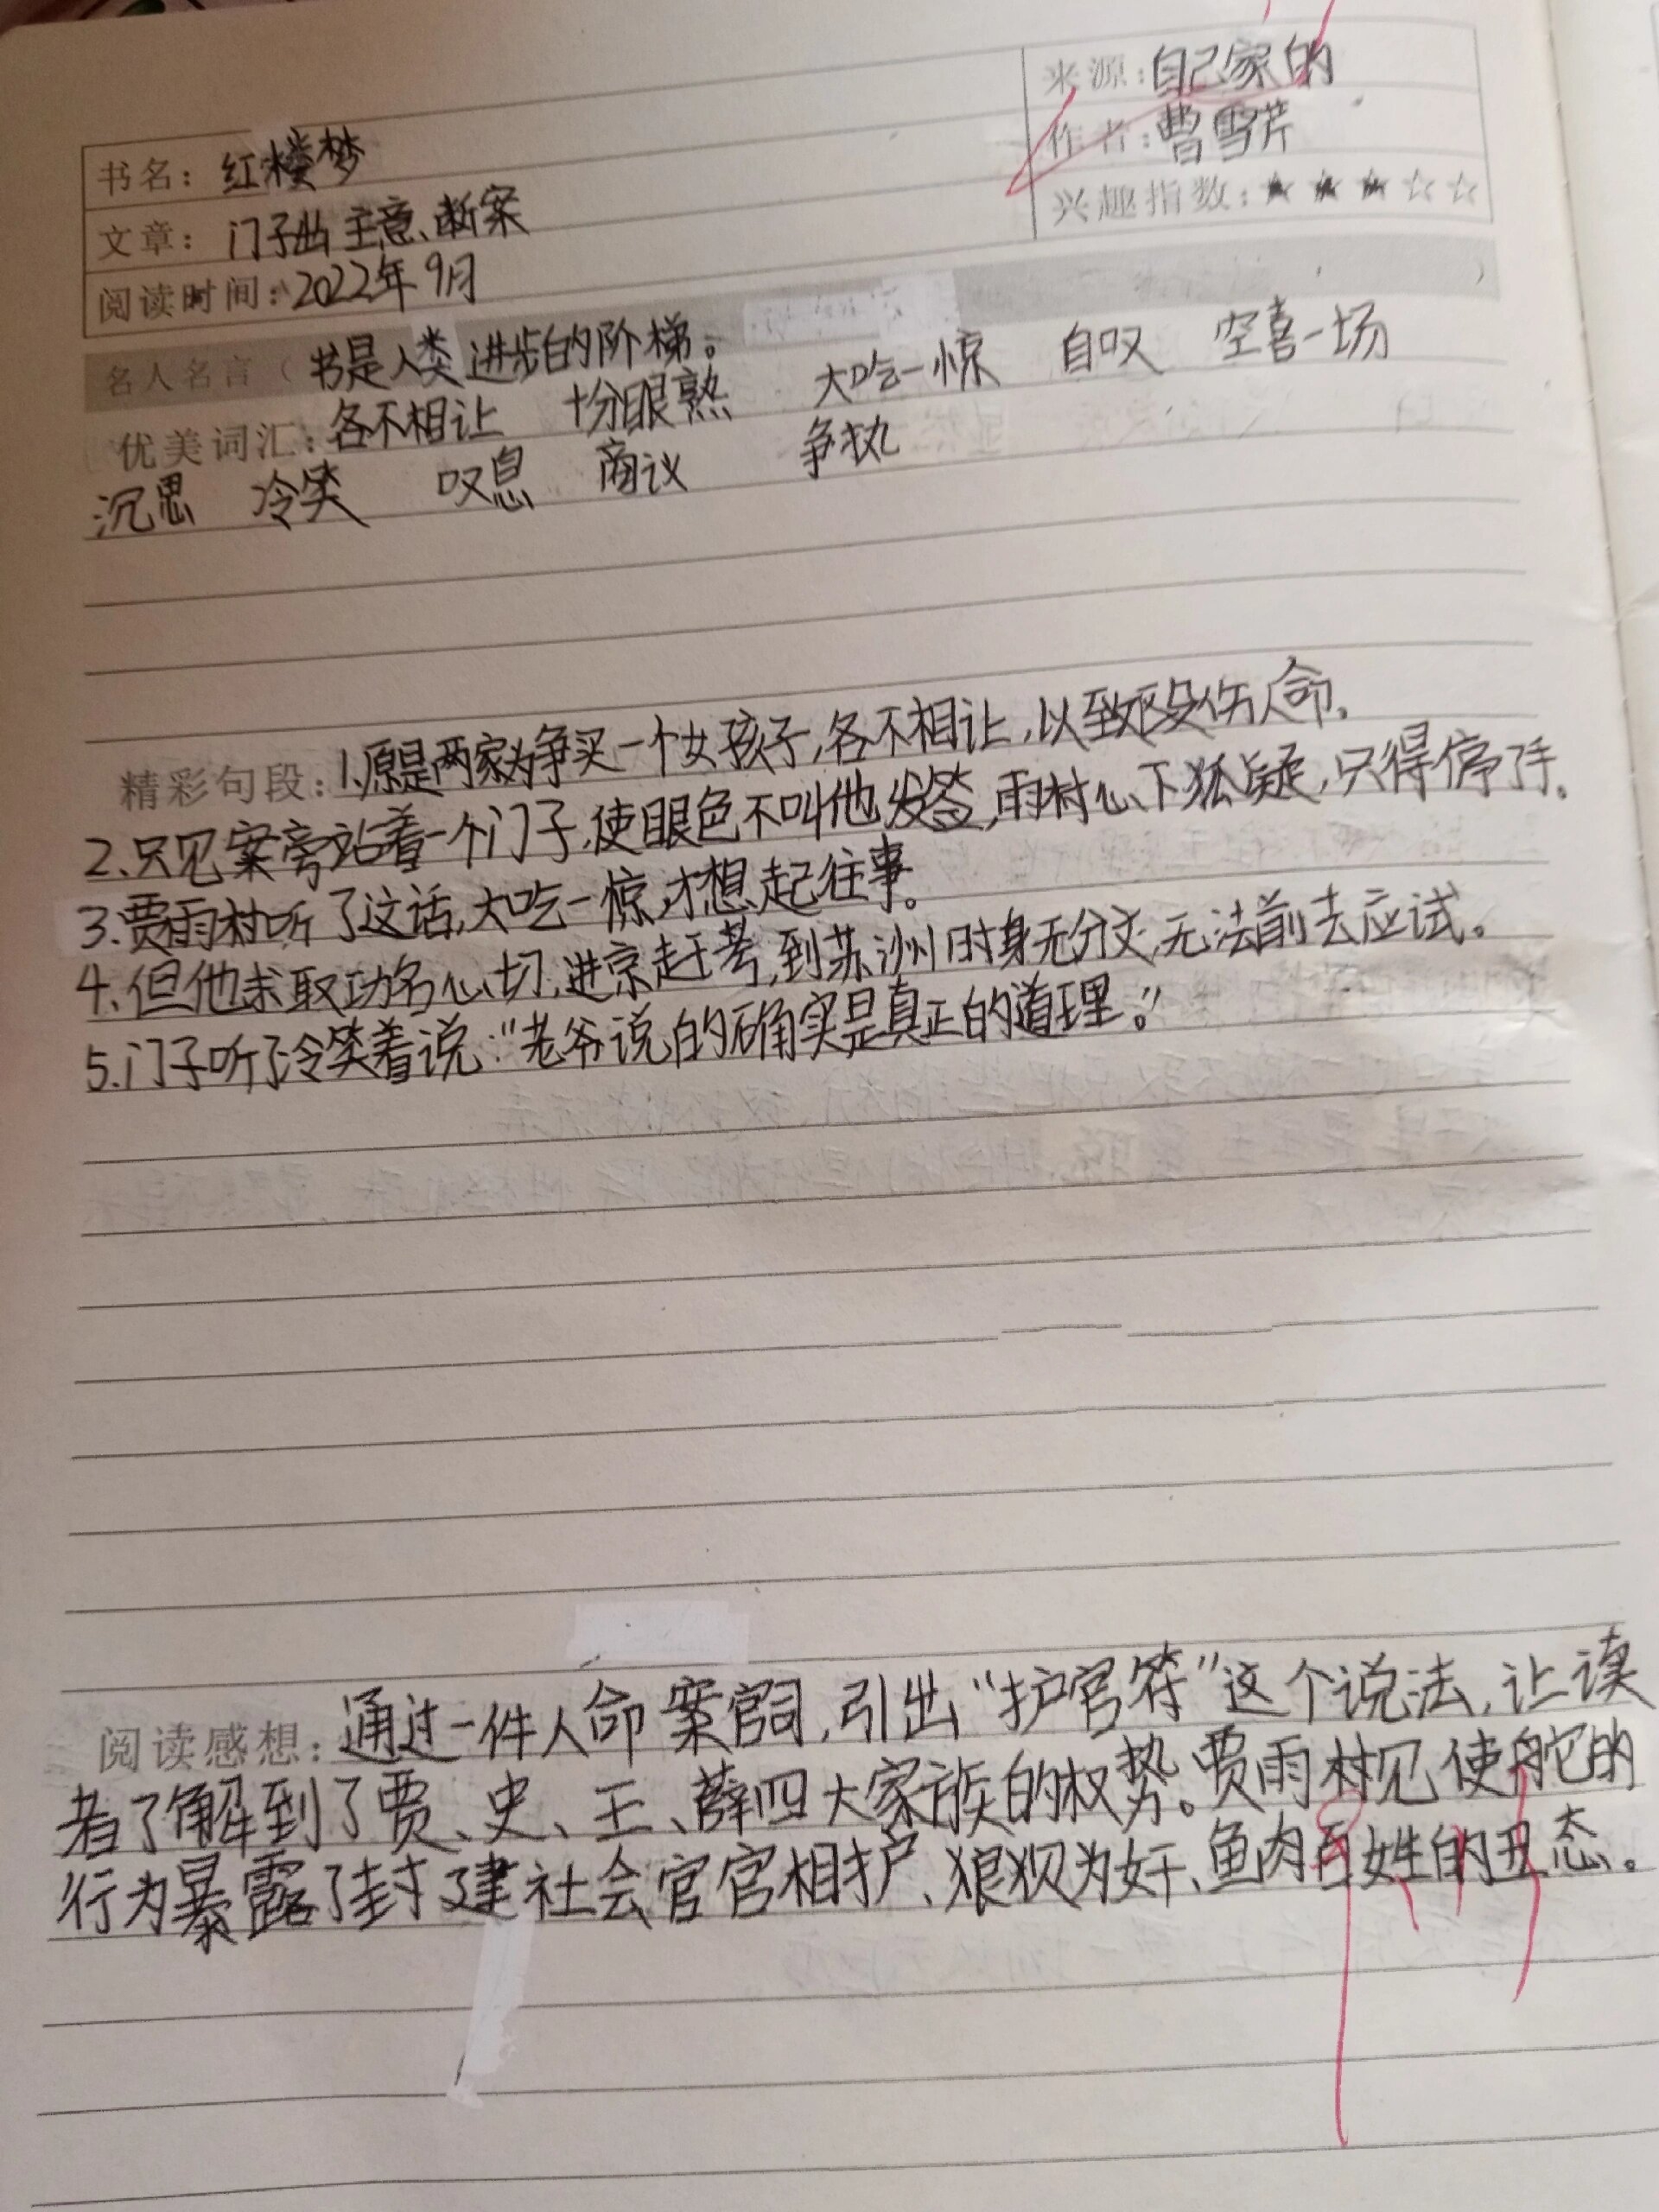 来源：自己家的
作者：曹雪芹
兴趣指数：★★★☆☆
书名：红楼梦
文章：门子出主意、断案
阅读时间：2022年9月
名人名言（书是人类进步的阶梯。
优美词汇：各不相让 十分眼熟 大吃一惊 自叹 空喜一场
沉思 冷笑 叹息 商议 争执
精彩句段：1.原是两家为争买一个女孩子，各不相让，以致殴伤人命。
2.只见案旁站着一个门子，使眼色不叫他发签，雨村心下狐疑，只得停了手。
3.贾雨村听了这话，大吃一惊，才想起往事。
4.但他求取功名心切，进京赶考，到苏洲时身无分文，无法前去应试。
5.门子听了冷笑着说：“老爷说的确实是真正的道理。”
阅读感想：通过一件人命案官司，引出“护官符”这个说法，让读
者了解到了贾、史、王、薛四大家族的权势。贾雨村见使舵的
行为暴露了封建社会官官相护、狼狈为奸、鱼肉百姓的丑态。